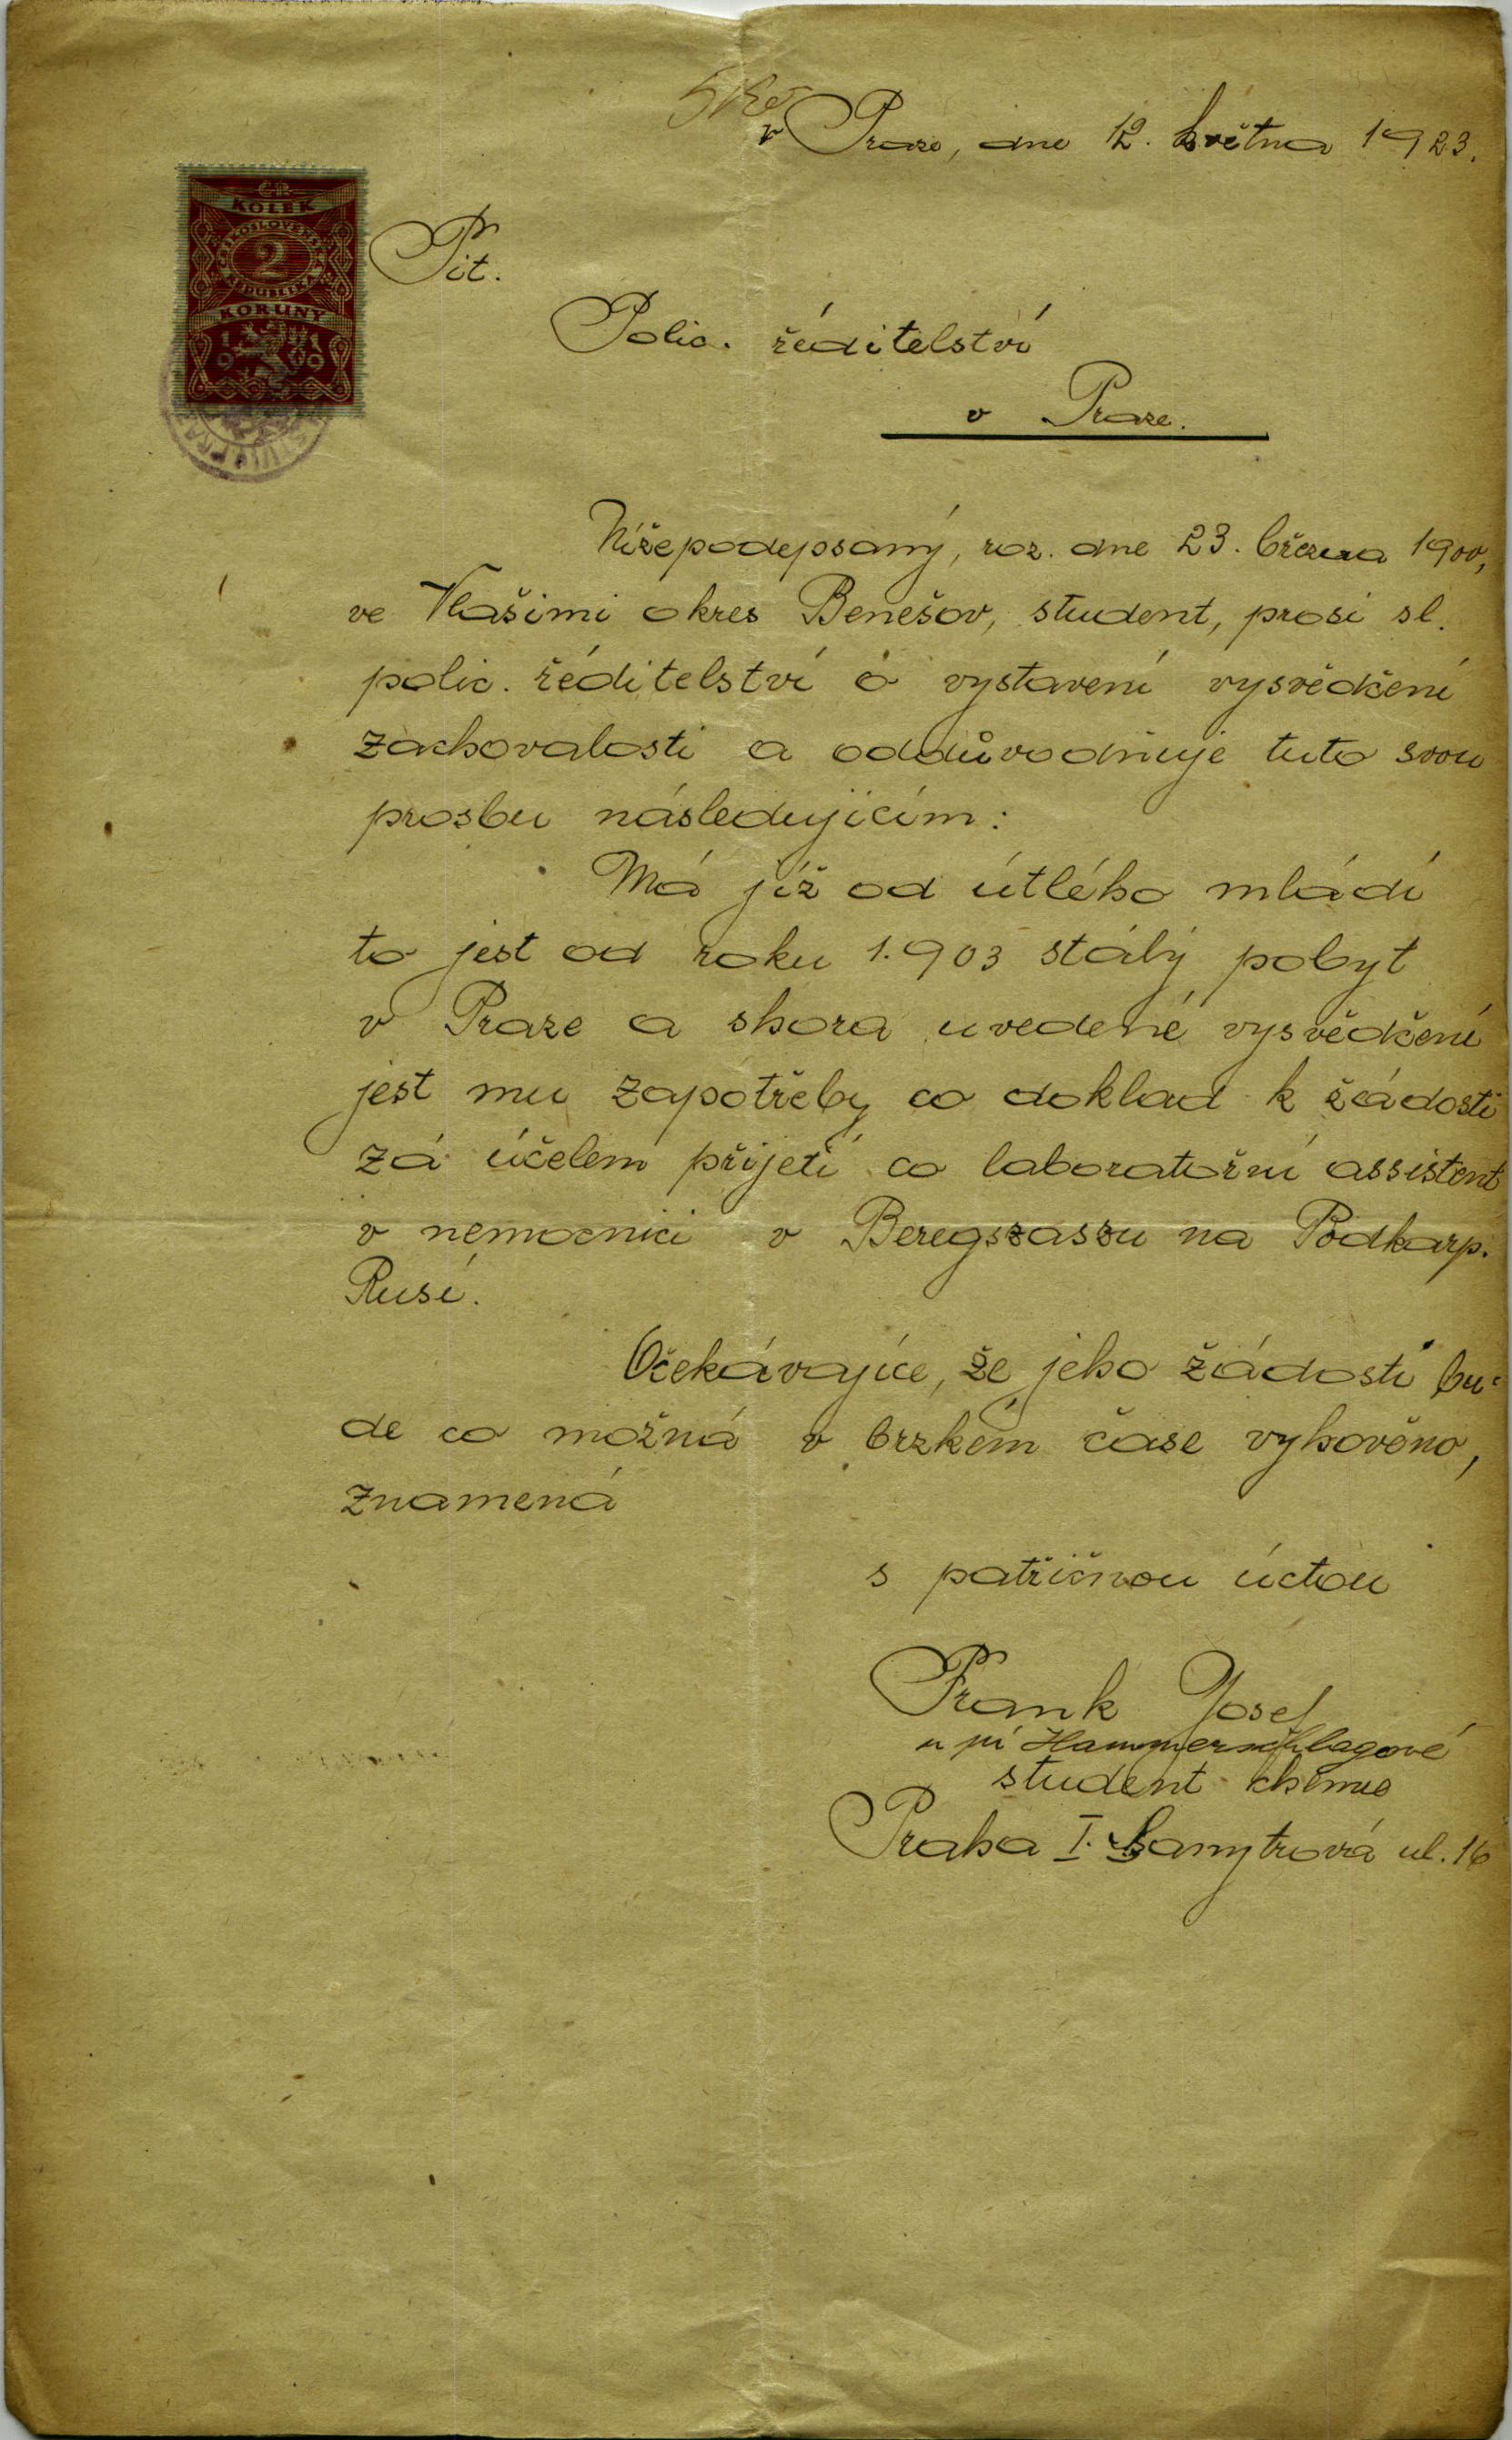 v Praze, dne 12. května 1923.
ČR.
KOLEK
ČESKOSLOVENSKÁ
2
REPUBLIKA
KORUNY
Tit.
Polic. ředitelství
v Praze.
Nížepodepsaný, roz. dne 23. března 1900,
ve Vlašimi okres Benešov, student, prosí sl.
polic. ředitelství o vystavení vysvědčení
zachovalosti a oddůvodňuje tuto svou
prosbu následujícím:
Má již od útlého mládí
to jest od roku 1.903 stálý pobyt
v Praze a shora uvedené vysvědčení
jest mu zapotřeby co doklad k žádosti
za účelem přijetí co laboratořní assistent
v nemocnici v Beregszaszu na Podkarp.
Rusi.
Očekávajíce, že jeho žádosti bu-
de co možná v brzkém čase vyhověno,
znamená
s patřičnou úctou
Frank Josef
u pí Hammerschlagové
student chemie
Praha I. Samytrová ul. 16